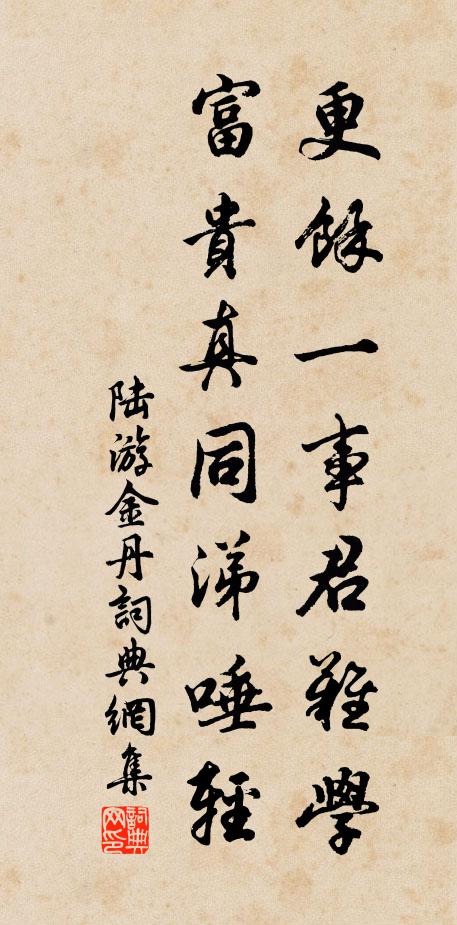 更餘一事君難學
富貴真同涕唾輕
陸游金丹詞典網集
詞典网印